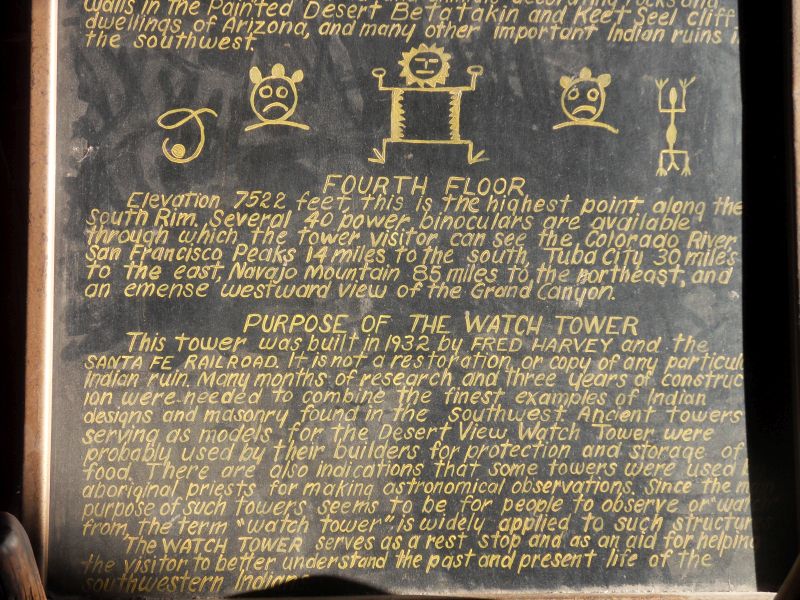 walls in the Painted Desert Betatakin and Keet Seel cliff
dwellings of Arizona, and many other important Indian ruins
the southwest.
FOURTH FLOOR
Elevation 7522 feet, this is the highest point along the
South Rim. Several 40 power binoculars are available
through which the tower visitor can see the Colorado River
San Francisco Peaks 14 miles to the south, Tuba City 30 miles
to the east, Navajo Mountain 85 miles to the northeast, and
an emense westward view of the Grand Canyon.
PURPOSE OF THE WATCH TOWER
This tower was built in 1932 by FRED HARVEY and the
SANTA FE RAILROAD. It is not a restoration, or copy of any particul
Indian ruin. Many months of research and three years of construc
ion were needed to combine the finest examples of Indian
designs and masonry found in the southwest. Ancient towers
serving as models for the Desert View Watch Tower were
probably used by their builders for protection and storage of
food. There are also indications that some towers were used
aboriginal priests for making astronomical observations. Since the
purpose of such towers seems to be for people to observe or "wa
from, the term "watch tower", is widely applied to such structur
The WATCH TOWER serves as a rest stop and as an aid for helpin
the visitor to better understand the past and present life of the
southwestern Indians